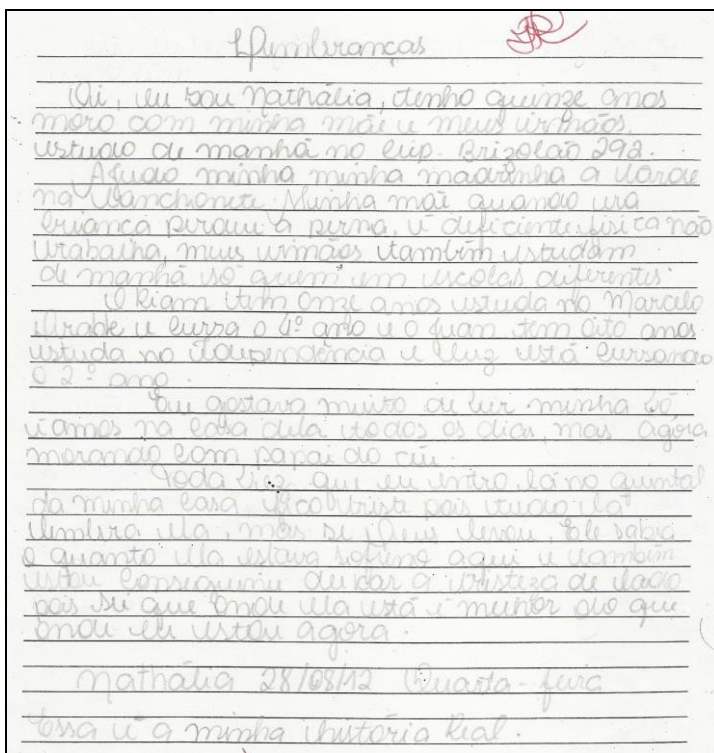 Lembranças
Oi, eu sou Nathália, tenho quinze anos
moro com minha mãe e meus irmãos.
estudo de manhã no Ciep. Brizolão 292.
Ajudo minha minha madrinha a tarde
na Lanchonete. Minha mãe quando era
criança perdeu a perna, é deficiente física não
trabalha, meus irmãos também estudam
de manhã só quem em escolas diferentes.
O Rian tem Onze anos estuda no Marcelo
e cursa o 4º ano e o Juan tem Oito anos
estuda no Independência e Luz está cursando
o 2º ano.
Eu gostava muito de ver minha vó
íamos na casa dela todos os dias, mas agora
morando com papai do céu.
Toda vez que eu entro lá no quintal
da minha casa, fico triste pois tudo lá
lembra ela, mas se Deus levou, Ele sabia
o quanto ela estava sofreno aqui e também
estou conseguine deixar a tristeza de lado
pois sei que onde ela está é melhor do que
onde eu estou agora.
Nathália 28/08/12 Quarta-feira
Essa é a minha história Real.